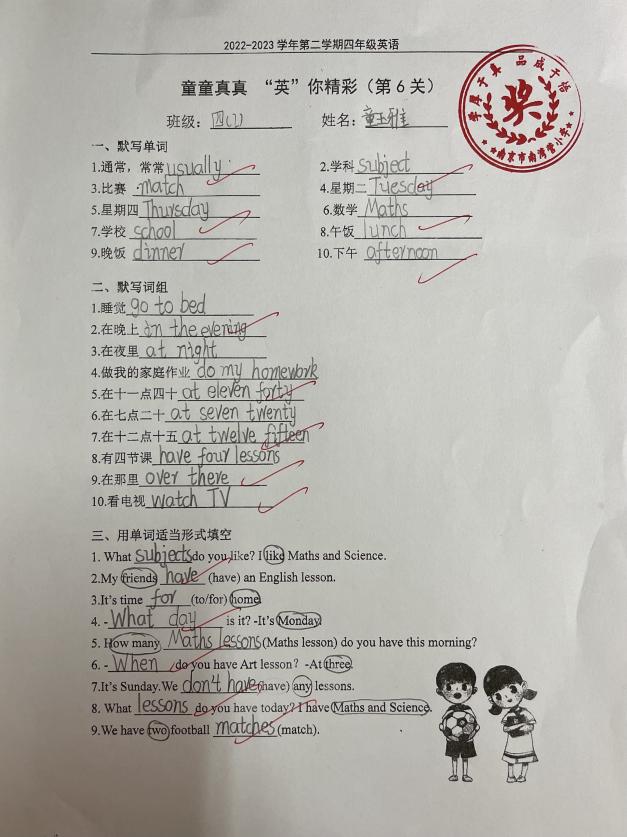 2022-2023 学年第二学期四年级英语
童童真真 “英”你精彩（第 6 关）
学厚于真 品成于悟
奖
★★南京市南湾营小学★★
班级: 四(2) 姓名: 童玉雅
一、默写单词
1.通常，常常 usually 2.学科 subject
3.比赛 match 4.星期二 Tuesday
5.星期四 Thursday 6.数学 Maths
7.学校 school 8.午饭 lunch
9.晚饭 dinner 10.下午 afternoon
二、默写词组
1.睡觉 go to bed
2.在晚上 in the evening
3.在夜里 at night
4.做我的家庭作业 do my homework
5.在十一点四十 at eleven forty
6.在七点二十 at seven twenty
7.在十二点十五 at twelve fifteen
8.有四节课 have four lessons
9.在那里 over there
10.看电视 watch TV
三、用单词适当形式填空
1. What subjects do you like? I like Maths and Science.
2.My friends have (have) an English lesson.
3.It's time for (to/for) home.
4. -What day is it? -It's Monday.
5. How many Maths lessons (Maths lesson) do you have this morning?
6. -When do you have Art lesson? -At three.
7.It's Sunday.We don't have (have) any lessons.
8. What lessons do you have today? I have Maths and Science.
9.We have two football matches (match).